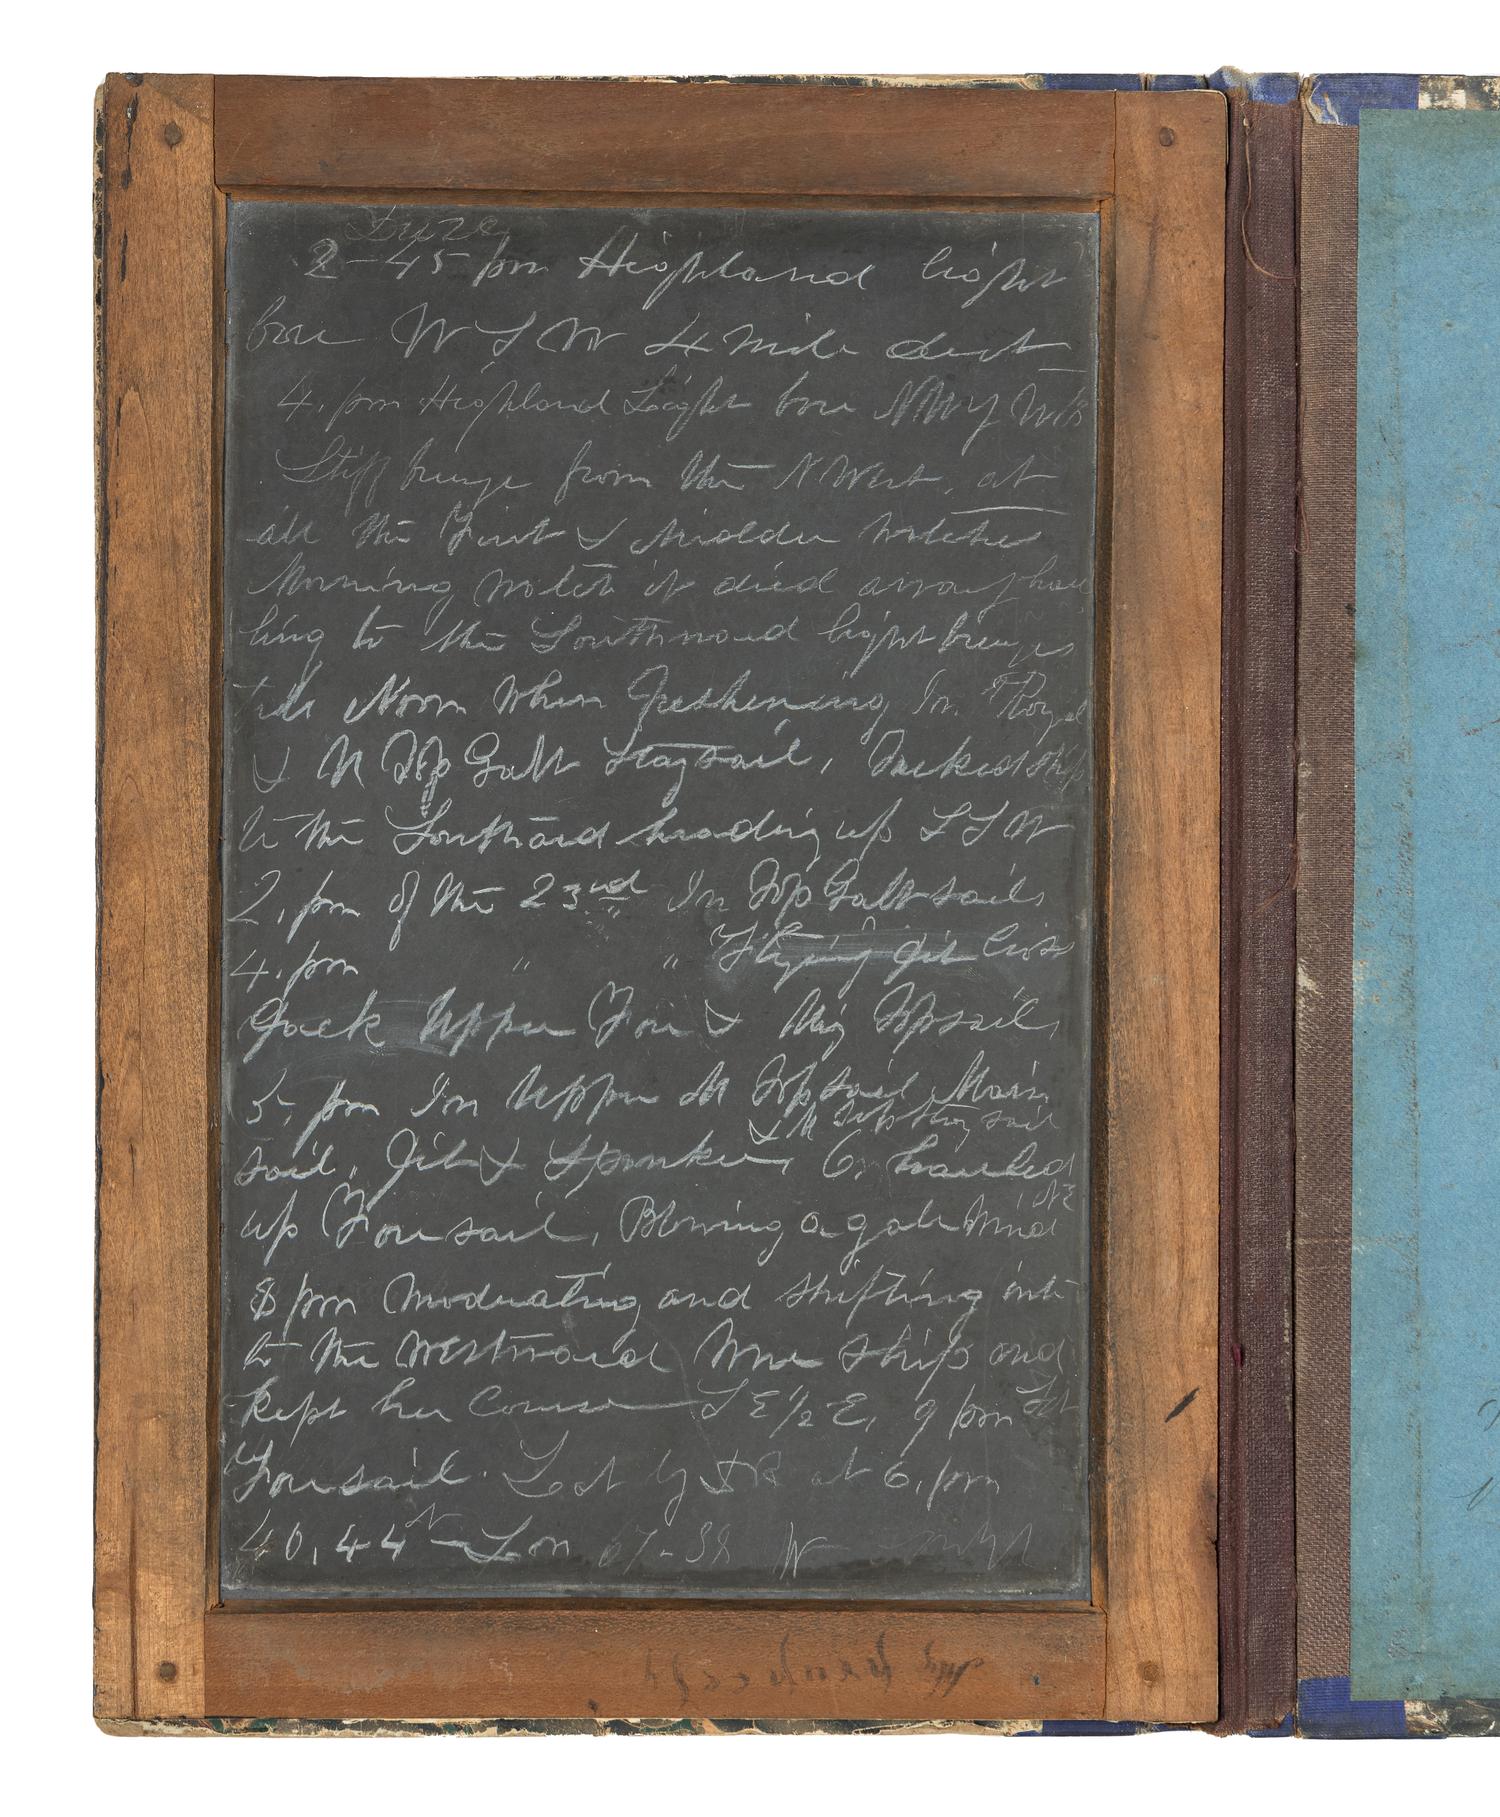 2-45 pm Highland light
bore W S W 4 mile dist
4. pm Highland Light bore NW by W
Stiff breeze from the N West, at
all the First & Middle watches
Morning watch it died away hau
ling to the Southward light breezes
till Noon when Freshening In Royal
& M Top Gallt Staysail, Tacked ship
to the Southard heading up S S W
2. pm of the 23rd In Top Gallt sails
4. pm " " Flying Jib
Jack Upper Fore & Miz Topsails
5. pm In Upper M Topsail, Main
& M Topstaysail
sail, Jib & Spanker, 6 hauled
up Foresail, Blowing a gale Wind NE
8 pm Moderating and shifting into
to the Westward Wore ship and
kept her Course S E 1/2 E, 9 pm Set
Foresail. Lat by DR at 6. pm
40,44 N Lon 67-38 W